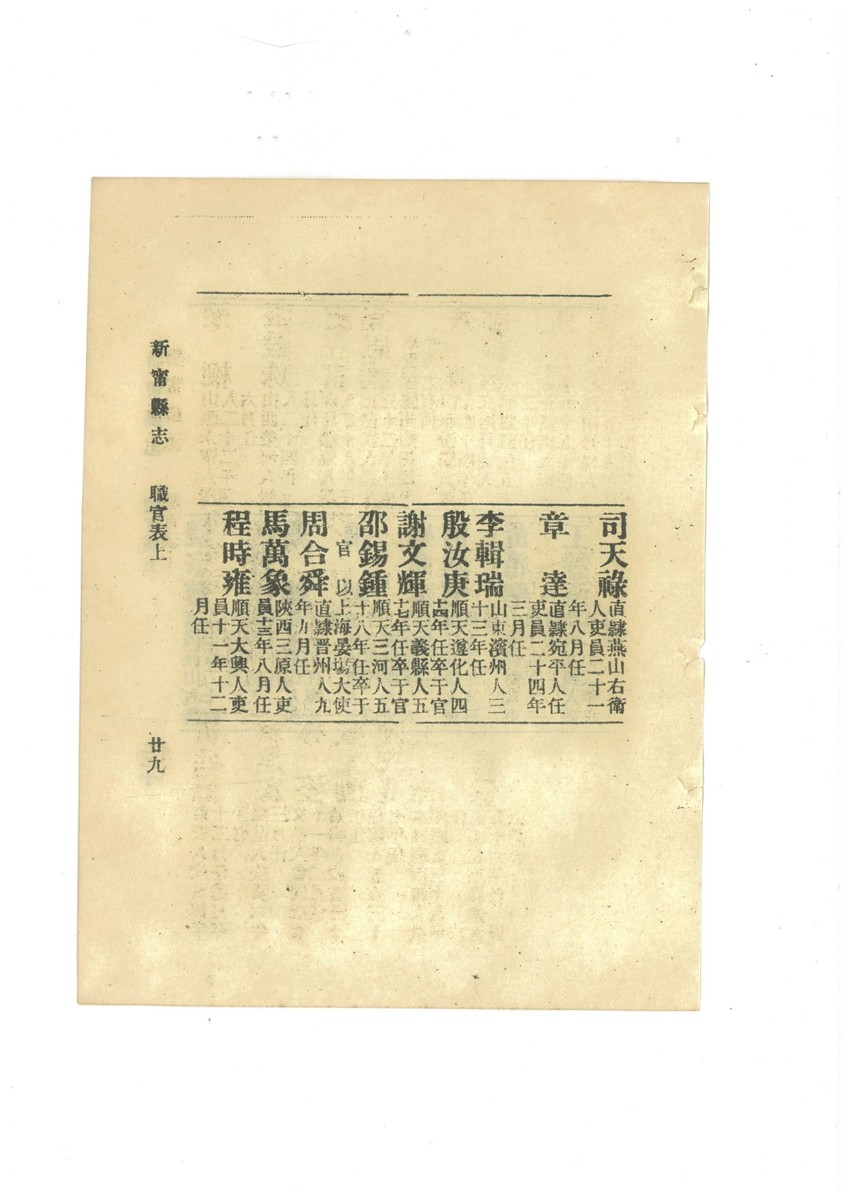 司天祿 直隸燕山右衛
人吏員二十一
年八月任
章達 直隸宛平人任
吏員二十四年
三月任
李輯瑞 山東濱州人三
十三年任
殷汝庚 順天遵化人四
十四年任卒于官
謝文輝 順天義縣人五
十七年任卒于官
邵錫鍾 順天三河人五
十八年任卒于
官 以上海晏場大使
周合舜 直隸晋州人九
年九月任
馬萬象 陝西三原人吏
員十三年八月任
程時雍 順天大興人吏
員十一年十二
月任
新甯縣志 職官表上 廿九